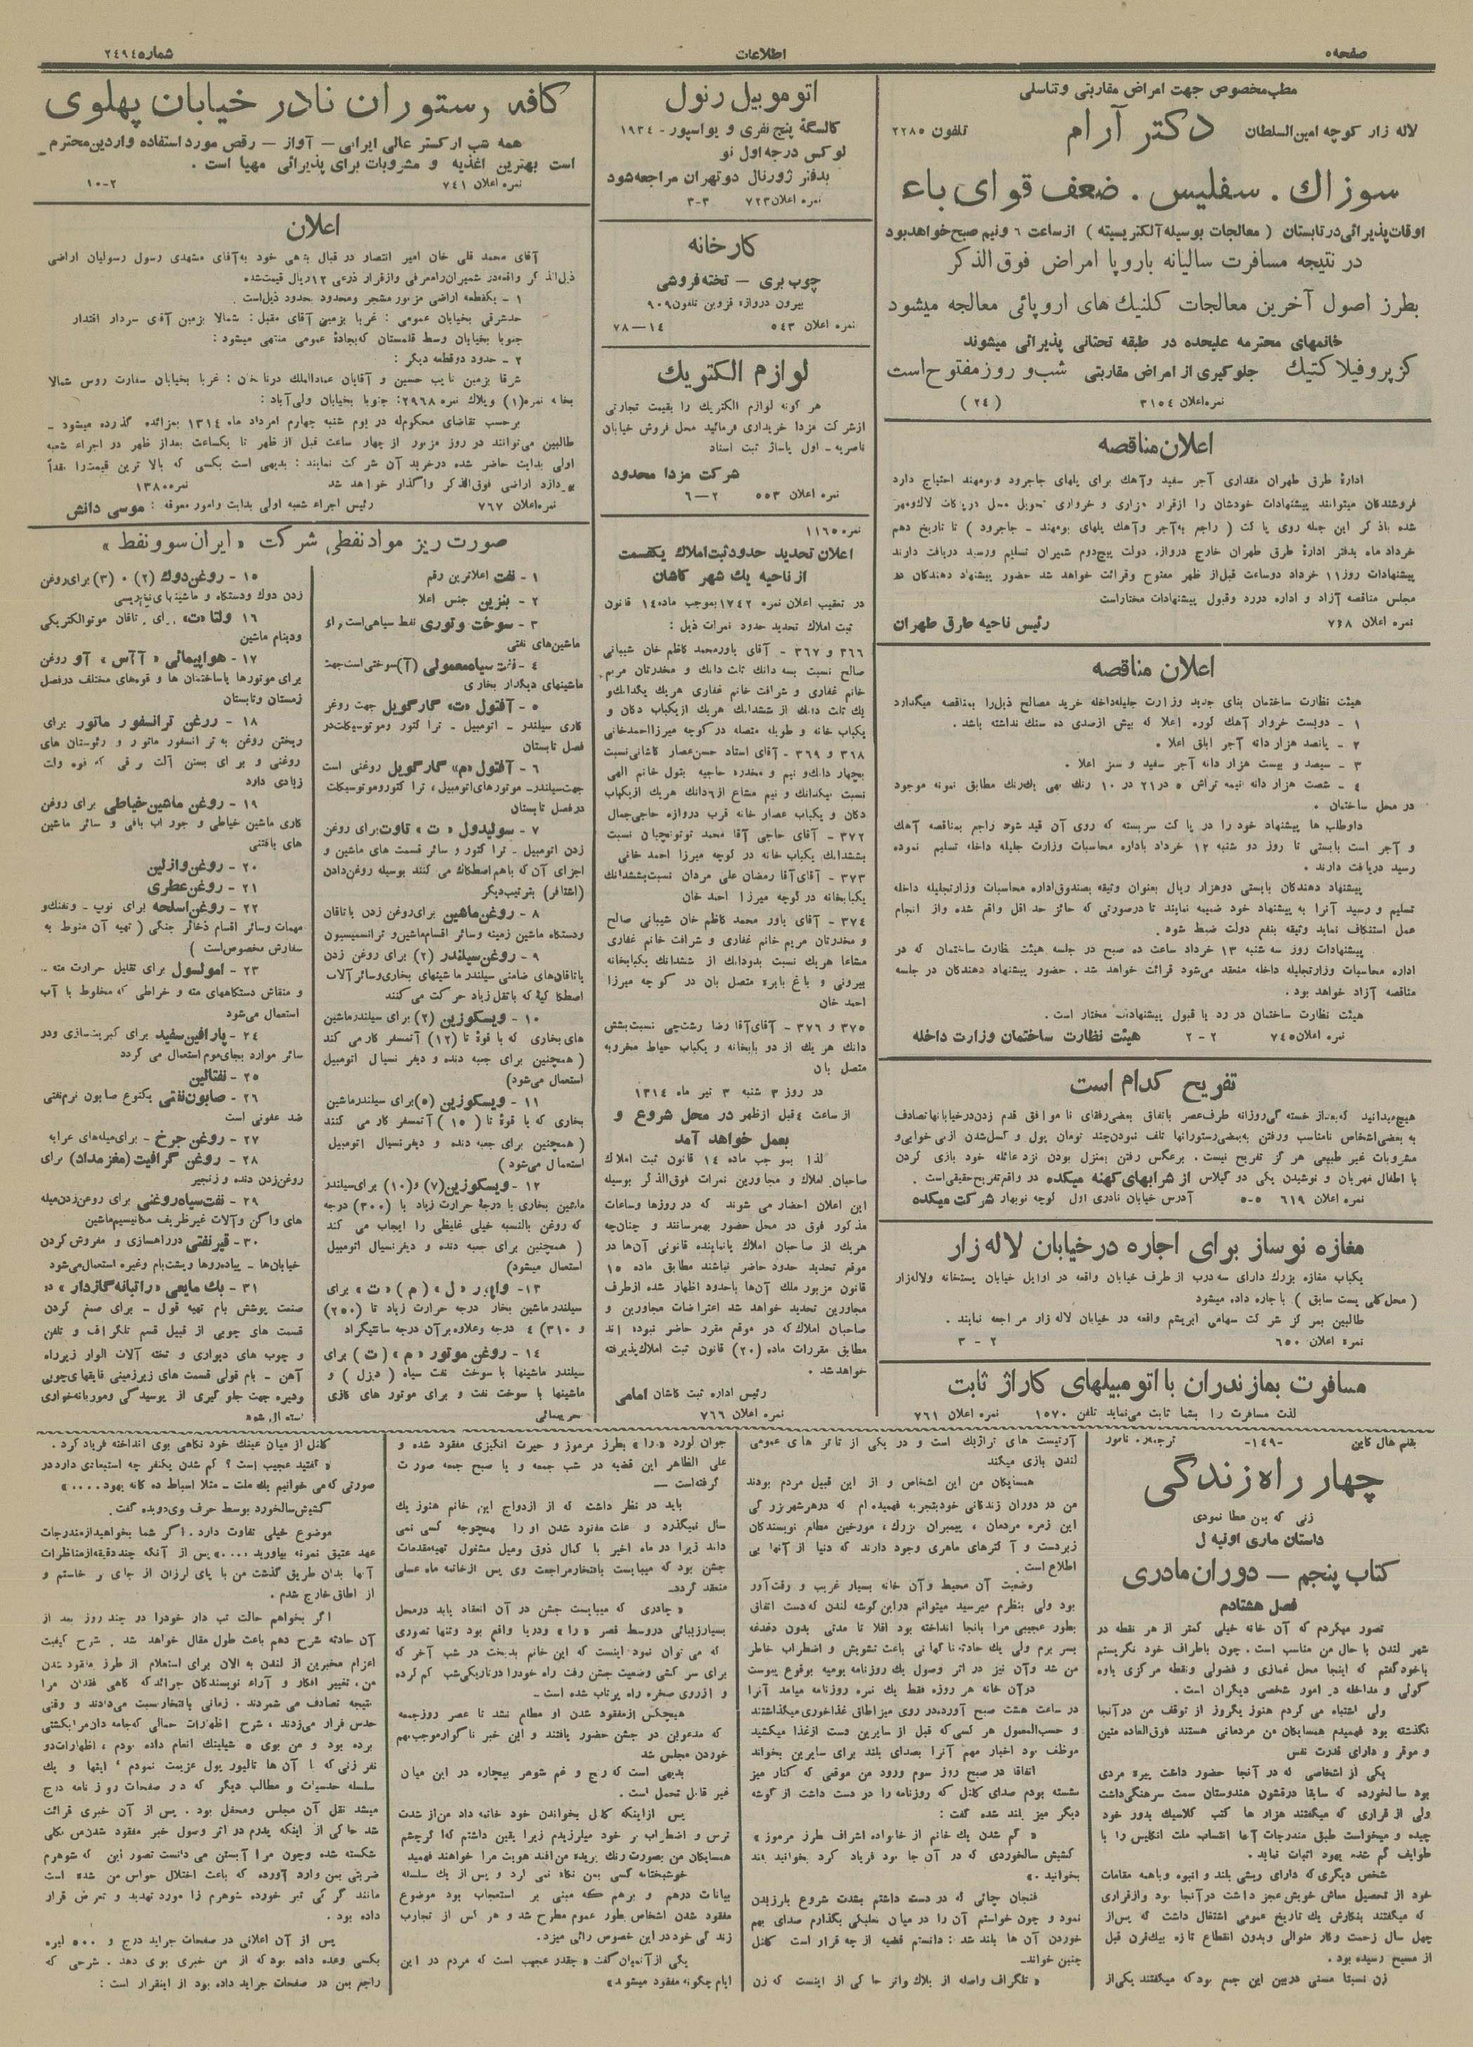 صفحه ۵
اطلاعات
شماره ۲۴۹۴
مطب مخصوص جهت امراض مقاربتی و تناسلی
لاله زار کوچه امین السلطان دکتر آرام تلفون ۲۲۸۵
سوزاك . سفلیس . ضعف قوای باء
اوقات پذیرائی در تابستان ( معالجات بوسیله آلکتریسیته ) از ساعت ۶ و نیم صبح خواهد بود
در نتیجه مسافرت سالیانه باروپا امراض فوق الذکر
بطرز اصول آخرین معالجات کلنیك های اروپائی معالجه میشود
خانمهای محترمه علیحده در طبقه تحتانی پذیرائی میشوند
کز پروفیلاکتیك جلوگیری از امراض مقاربتی شب و روز مفتوح است
نمره اعلان ۳۱۵۴ (۲۴)
اعلان مناقصه
ادارهٔ طرق طهران مقداری آجر سفید و آهك برای پلهای جاجرود و بومهند احتیاج دارد
فروشندگان میتوانند پیشنهادات خودشان را از قرار هزاری و خرواری تحویل محل در پاکات لاك و مهر
شده با ذکر این جمله روی پاکت ( راجع به آجر و آهك پلهای بومهند - جاجرود ) تا تاریخ دهم
خرداد ماه بدفتر ادارهٔ طرق طهران خارج دروازه دولت پیچ دوم شمیران تسلیم و رسید دریافت دارند
پیشنهادات روز ۱۱ خرداد دو ساعت قبل از ظهر مفتوح و قرائت خواهد شد حضور پیشنهاد دهندگان در
مجلس مناقصه آزاد و اداره در رد و قبول پیشنهادات مختار است
نمره اعلان ۷۶۸ رئیس ناحیه طارق طهران
اعلان مناقصه
هیئت نظارت ساختمان بنای جدید وزارت جلیله داخله خرید مصالح ذیل را بمناقصه میگذارد
۱ - دویست خروار آهك کوره اعلا که بیش از صدی ده سنك نداشته باشد .
۲ - پانصد هزار دانه آجر ابلق اعلا .
۳ - سیصد و بیست هزار دانه آجر سفید و سبز اعلا .
۴ - شصت هزار دانه نیمه تراش ۵ در ۲۱ در ۱۰ رنك بهی یك رنك مطابق نمونه موجود
در محل ساختمان .
داوطلب ها پیشنهاد خود را در پاکت سربسته که روی آن قید شود راجع بمناقصه آهك
و آجر است بایستی تا روز دو شنبه ۱۲ خرداد باداره محاسبات وزارت جلیله داخله تسلیم نموده
رسید دریافت دارند .
پیشنهاد دهندگان بایستی دو هزار ریال بعنوان وثیقه بصندوق اداره محاسبات وزارتجلیله داخله
تسلیم و رسید آنرا به پیشنهاد خود ضمیمه نمایند تا در صورتی که حائز حد اقل واقع شده و از انجام
عمل استنکاف نماید وثیقه بنفع دولت ضبط شود .
پیشنهادات روز سه شنبه ۱۳ خرداد ساعت ده صبح در جلسه هیئت نظارت ساختمان که در
اداره محاسبات وزارتجلیله داخله منعقد می‌شود قرائت خواهد شد . حضور پیشنهاد دهندگان در جلسه
مناقصه آزاد خواهد بود .
هیئت نظارت ساختمان در رد یا قبول پیشنهادات مختار است .
نمره اعلان ۷۴۵ ۲ - ۲ هیئت نظارت ساختمان وزارت داخله
تفریح کدام است
هیچ میدانید که بعد از خسته گی روزانه طرف عصر باتفاق بعضی رفقای ناموافق قدم زدن در خیابانها تصادف
به بعضی اشخاص نامناسب و رفتن به بعضی رستورانها تلف نمودن چند تومان پول و کسل شدن از بی خوابی و
مشروبات غیر طبیعی هر گز تفریح نیست . برعکس رفتن بمنزل بودن نزد عائله خود بازی کردن
با اطفال مهربان و نوشیدن یکی دو گیلاس از شرابهای کهنه میکده در واقع تفریح حقیقی است .
نمره اعلان ۶۱۹ ۵-۵ آدرس خیابان نادری اول کوچه نوبهار شرکت میکده
مغازه نوساز برای اجاره در خیابان لاله زار
یکباب مغازه بزرك دارای سه درب از طرف خیابان واقعه در اوایل خیابان پستخانه و لاله زار
( محل کلی پست سابق ) باجاره داده میشود
طالبین بمرکز شرکت سهامی ابریشم واقعه در خیابان لاله زار مراجعه نمایند .
نمره اعلان ۶۵۰ ۲ - ۳
مسافرت بمازندران با اتومبیلهای کاراژ ثابت
لذت مسافرت را بشما ثابت می‌نماید تلفن ۱۵۷۰ نمره اعلان ۷۶۱
اتوموبیل رنول
کالسگهٔ پنج نفری و یواسپور - ۱۹۳۴
لوکس درجه اول نو
بدفتر ژورنال دو تهران مراجعه شود
نمره اعلان ۷۲۳ ۳-۳
کارخانه
چوب بری — تخته فروشی
بیرون دروازه قزوین تلفون ۹۰۹
نمره اعلان ۵۴۳ ۱۴—۷۸
لوازم الکتریك
هر گونه لوازم الکتریك را بقیمت تجارتی
از شرکت مزدا خریداری فرمائید محل فروش خیابان
ناصریه - اول پاساژ ثبت اسناد
شرکت مزدا محدود
نمره اعلان ۵۵۳ ۲—۶
نمره ۱۱۶۵
اعلان تحدید حدود ثبت املاك یکقسمت
از ناحیه یك شهر کاشان
در تعقیب اعلان نمره ۱۷۴۲ بموجب ماده ۱۴ قانون
ثبت املاك تحدید حدود نمرات ذیل :
۳۶۶ و ۳۶۷ - آقای یاور محمد کاظم خان شیبانی
صالح نسبت بسه دانك ثلث دانك و مخدرتان مریم
خانم غفاری و شرافت خانم غفاری هریك یکدانك و
یك ثلث دانك از ششدانك هریك از یکباب دکان و
یکباب خانه و طویله متصله در کوچه میرزا احمد خانی
۳۶۸ و ۳۶۹ - آقای استاد حسن عصار کاشانی نسبت
بچهار دانك و نیم و مخدره حاجیه بتول خانم الهی
نسبت بیکدانك و نیم مشاع از ۶ دانك هریك از یکباب
دکان و یکباب عصار خانه قرب دروازه حاجی جمال
۳۷۲ - آقای حاجی آقا محمد توتونچیان نسبت
بششدانك یکباب خانه در کوچه میرزا احمد خانی
۳۷۳ - آقای آقا رمضان علی مردان نسبت بششدانك
یکبابخانه در کوچه میرزا احمد خان
۳۷۴ - آقای یاور محمد کاظم خان شیبانی صالح
و مخدرتان مریم خانم غفاری و شرافت خانم غفاری
مشاعا هریك نسبت بدودانك از ششدانك یکبابخانه
بیرونی و باغ بایره متصل بان در کوچه میرزا
احمد خان
۳۷۵ و ۳۷۶ - آقای آقا رضا رشتچی نسبت بشش
دانك هریك از دو بابخانه و یکباب حیاط مخروبه
متصل بان
در روز ۳ شنبه ۳ تیر ماه ۱۳۱۴
از ساعت ۴ قبل از ظهر در محل شروع و
بعمل خواهد آمد
لذا بموجب ماده ۱۴ قانون ثبت املاك
صاحبان املاك و مجاورین نمرات فوق الذکر بوسیله
این اعلان احضار می شوند که در روزها و ساعات
مذکور فوق در محل حضور بهمرسانند و چنانچه
هریك از صاحبان املاك یا نماینده قانونی آن‌ها در
موقع تحدید حدود حاضر نباشند مطابق ماده ۱۵
قانون مزبور ملك آن‌ها با حدود اظهار شده از طرف
مجاورین تحدید خواهد شد اعتراضات مجاورین و
صاحبان املاك که در موقع مقرر حاضر نبوده اند
مطابق مقررات ماده (۲۰) قانون ثبت املاك پذیرفته
خواهد شد .
رئیس اداره ثبت کاشان امامی
نمره اعلان ۷۶۶
کافه رستوران نادر خیابان پهلوی
همه شب ارکستر عالی ایرانی — آواز — رقص مورد استفاده واردین محترم
است بهترین اغذیه و مشروبات برای پذیرائی مهیا است .
نمره اعلان ۷۴۱ ۲-۱۰
اعلان
آقای محمد قلی خان امیر انتصار در قبال بدهی خود به آقای مشهدی رسول رسولیان اراضی
ذیل الذکر واقعه در شمیران را معرفی و از قرار ذرعی ۱۲ ریال قیمت شده
۱ - یکقطعه اراضی مزبور مشجر و محدود بحدود ذیل است .
حد شرقی بخیابان عمومی : غربا بزمین آقای مقبل : شمالا بزمین آقای سردار اقتدار
جنوبا بخیابان وسط قلمستان که بجادهٔ عمومی منتهی میشود :
۲ - حدود دو قطعه دیگر :
شرقا بزمین نایب حسین و آقایان عماد الملك غربا بخیابان سفارت روس شمالا
بخانه نمره (۱) و پلاك نمره ۲۹۶۸ : جنوبا بخیابان ولی آباد :
برحسب تقاضای محکوم‌له در یوم شنبه چهارم امرداد ماه ۱۳۱۴ بمزائده گذرده میشود -
طالبین می‌توانند در روز مزبور از چهار ساعت قبل از ظهر تا یکساعت بعد از ظهر در اجراء شعبه
اولی بدایت حاضر شده در خرید آن شرکت نمایند : بدیهی است بکسی که بالا ترین قیمت را نقداً
بپردازد اراضی فوق الذکر واگذار خواهد شد نمره ۱۳۸۰۰
نمره اعلان ۷۶۷ رئیس اجراء شعبه اولی بدایت و امور معوقه : موسی دانش
صورت ریز مواد نفطی شرکت « ایران سوونفط »
۱ - نفت اعلاترین رقم
۲ - بنزین جنس اعلا
۳ - سوخت و توری نفط سیاهی است برای
ماشین‌های نفتی
۴ - نفت سیاه معمولی (آ) سوختی است جهت
ماشینهای دیگدار بخاری
۵ - آفتول «ت» گارگویل جهت روغن
کاری سیلندر - اتومبیل - ترا کتور و موتوسیکلت در
فصل تابستان
۶ - آفتول «م» گارگویل روغنی است
جهت سیلندر - موتورهای اتومبیل ، ترا کتور و موتوسیکلت
در فصل تابستان
۷ - سولیدول «ت» تاوت برای روغن
زدن اتومبیل - ترا کتور و سائر قسمت های ماشین و
اجزای آن که باهم اصطکاك می کنند بوسیله روغن‌دادن
( اشتافر ) بترتیب دیگر
۸ - روغن ماشین برای روغن زدن یاتاقان
و دستگاه ماشین زمینه و سائر اقسام ماشین و ترانسمیسیون
۹ - روغن سیلندر (۲) برای روغن زدن
یاتاقان‌های ضامنی سیلندر ماشینهای بخاری و سائر آلات
اصطکاکیه که با ثقل زیاد حرکت می کنند
۱۰ - ویسکوزین (۲) برای سیلندر ماشین
های بخاری که با قوهٔ تا (۱۲) آتمسفر کار می کند
( همچنین برای جعبه دنده و دیفرنسیال اتومبیل
استعمال می‌شود)
۱۱ - ویسکوزین (۵) برای سیلندر ماشین
بخاری که با قوهٔ تا ( ۱۵ ) آتمسفر کار می کنند
( همچنین برای جعبه دنده و دیفرنسیال اتومبیل
استعمال می‌شود )
۱۲ - ویسکوزین (۷) و (۱۰) برای سیلندر
ماشین بخاری با درجهٔ حرارت زیاد یا (۳۰۰) درجه
که روغن بالنسبه خیلی غلیظی را ایجاب می کند
( همچنین برای جعبه دنده و دیفرنسیال اتومبیل
استعمال میشود)
۱۳ - واپر «ل» ( م ) «ت» برای
سیلندر ماشین بخار درجه حرارت زیاد تا (۲۵۰)
و ۳۱۰) ۴ درجه و علاوه بر آن درجه سانتیگراد
۱۴ - روغن موتور «م» ( ت ) برای
سیلندر ماشینها با سوخت نفت سیاه ( دیزل ) و
ماشینها با سوخت نفت و برای موتور های گازی
۱۵ - روغن دوك (۲) ۰ (۳) برای روغن
زدن دوك و دستگاه و ماشینهای نخ‌ریسی
۱۶ ولتا «ت» برای یاتاقان موتوالکتریکی
و دینام ماشین
۱۷ - هواپیمائی «آآس» آو روغن
برای موتورها یا ساختمان ها و قوه‌های مختلف در فصل
زمستان و تابستان
۱۸ - روغن ترانسفور ماتور برای
ریختن روغن به ترانسفور ماتور و رئوستان های
روغنی و برای بستن آلت برقی که قوه ولت
زیادی دارد
۱۹ - روغن ماشین خیاطی برای روغن
کاری ماشین خیاطی و جوراب بافی و سائر ماشین
های بافتنی
۲۰ - روغن وازلین
۲۱ - روغن عطری
۲۲ - روغن اسلحه برای توپ - و تفنك و
مهمات و سائر اقسام ذخائر جنگی ( تهیه آن منوط به
سفارش مخصوص است )
۲۳ - امولسول برای تقلیل حرارت مته -
و منقاش دستگاههای مته و خراطی که مخلوط با آب
استعمال می‌شود
۲۴ - پارافین سفید برای کبریت‌سازی و در
سائر موارد بجای موم استعمال می گردد
۲۵ - نفتالین
۲۶ - صابون نفتی یکنوع صابون نرم نفتی
ضد عفونی است
۲۷ - روغن چرخ - برای میله‌های عرابه
۲۸ - روغن گرافیت (مغز مداد) برای
روغن‌زدن دنده و زنجیر
۲۹ - نفت سیاه روغنی برای روغن‌زدن میله
های واگن و آلات غیر ظریف مکانیسم ماشین
۳۰ - قیر نفتی در راهسازی و مفروش کردن
خیابان‌ها - پیاده‌روها و پشت‌بام و غیره استعمال می‌شود
۳۱ - پك مایعی «راتبانه گازدار» در
صنعت پوشش بام تهیه قول - برای صمغ کردن
قسمت های چوبی از قبیل قسم تلگراف و تلفن
و چوب های دیواری و تخته آلات الوار زیر راه
آهن - بام قولی قسمت های زیرزمینی قایقهای چوبی
و غیره جهت جلوگیری از پوسیدگی و موریانه‌خواری
استعمال می شود
بقلم هال کاین -۱۴۹- ترجمه نامور
چهار راه زندگی
زنی که بمن عطا نمودی
داستان ماری اونیه ل
کتاب پنجم — دوران مادری
فصل هشتادم
تصور میکردم که آن خانه خیلی کمتر از هر نقطه در
شهر لندن با حال من مناسب است . چون باطراف خود نگریستم
با خود گفتم که اینجا محل غمازی و فضولی و نقطه مرکزی یاوه
گوئی و مداخله در امور شخصی دیگران است .
ولی اشتباه می کردم هنوز یکروز از توقف من در آنجا
نگذشته بود فهمیدم همسایکان من مردمانی هستند فوق‌العاده متین
و موقر و دارای قدرت نفس
یکی از اشخاصی که در آنجا حضور داشت پیره مردی
بود سالخورده که سابقا در قشون هندوستان سمت سرهنگی داشت
ولی از قراری که میگفتند هزار ها کتب کلاسیك بدور خود
چیده و میخواست طبق مندرجات آنها انتساب ملت انکلیس را با
طوایف گم شده یهود اثبات نماید .
شخص دیگری که دارای ریشی بلند و انبوه و باهمه مقامات
خود از تحصیل معاش خویش عجز داشت در آنجا بود و از قراری
که میگفتند بنگارش یك تاریخ عمومی اشتغال داشت که پس از
چهل سال زحمت و کار متوالی و بدون انقطاع تازه بیك قرن قبل
از مسیح رسیده بود .
زن نسبتا مسنی در بین این جمع بود که میگفتند یکی از
آرتیست های تراژیك است و در یکی از تآتر های عمومی
لندن بازی میکند
همسایکان من این اشخاص و از این قبیل مردم بودند
من در دوران زندگانی خود بتجربه فهمیده ام که در هر شهر بزرگی
این زمره مردمان ، پیمبران بزرك ، مورخین مطلع نویسندگان
زبردست و آکترهای ماهری وجود دارند که دنیا از آنها بی
اطلاع است .
وضعیت آن محیط و آن خانه بسیار غریب و رقت‌آور
بود ولی بنظرم میرسید میتوانم در این گوشه لندن که دست اتفاق
بطور عجیبی مرا بانجا انداخته بود اقلا تا مدتی بدون دغدغه
بسر برم ولی یك حادثه ناگهانی باعث تشویش و اضطراب خاطر
من شد و آن نیز در اثر وصول یك روزنامه یومیه بوقوع پیوست
در آن خانه هر روزه فقط یك نمره روزنامه میامد آنرا
در ساعت هشت صبح آورده در روی میز اطاق غذاخوری میگذاشتند
و حسب‌المعمول هر کسی که قبل از سایرین دست از غذا میکشید
موظف بود اخبار مهم آنرا بصدای بلند برای سایرین بخواند
اتفاقا در صبح روز سوم ورود من موقعی که کنار میز
نشسته بودم صدای کلنل که روزنامه را در دست داشت از گوشه
دیگر میز بلند شده گفت :
« گم شدن یك خانم از خانواده اشراف بطرز مرموز »
کشیش سالخوردی که در آن جا بود فریاد کرد بخوانید بله
بخوانید »
فنجان چائی که در دست داشتم بشدت شروع بلرزیدن
نمود و چون خواستم آن را در میان نعلبکی بگذارم صدای بهم
خوردن آن ها بلند شد : دانستم قضیه از چه قرار است کلنل
چنین خواند —
« تلگراف واصله از بلاك واتر حاکی از اینست که زن
جوان لورد «را» بطرز مرموز و حیرت انگیزی مفقود شده و
علی الظاهر این قضیه در شب جمعه و یا صبح جمعه صورت
گرفته‌است —
باید در نظر داشت که از ازدواج این خانم هنوز یك
سال نمیگذرد و علت مفقود شدن او را هیچوجه کسی نمی
داند زیرا در ماه اخیر با کمال ذوق و میل مشغول تهیه مقدمات
جشن بود که میبایست بافتخار مراجعت وی پس از خاتمه ماه عسلی
منعقد گردد .
« چادری که میبایست جشن در آن انعقاد یابد در محل
بسیار زیبائی در وسط قصر «را» و دریا واقع بود و تنها تصوری
که می توان نمود اینست که این خانم بدبخت در شب آخر که
برای سرکشی وضعیت جشن رفت راه خود را در تاریکی شب گم کرده
و از روی صخره راه پرتاب شده است —
هیچکس از مفقود شدن او مطلع نشد تا عصر روز جمعه
که مدعوین در جشن حضور یافتند و این خبر ناگوار موجب بهم
خوردن مجلس شد
بدیهی است که رنج و غم شوهر بیچاره در این میان
غیر قابل تحمل است .
پس از اینکه کلنل بخواندن خود خاتمه داد من از شدت
ترس و اضطراب بر خود میلرزیدم زیرا یقین داشتم که اگر چشم
همسایکان من بصورت رنك پریده من افتد هویت مرا خواهند فهمید
خوشبختانه کسی بمن نگاه نمی کرد و پس از یك سلسله
بیانات درهم و برهم که مبنی بر استعجاب بود موضوع
مفقود شدن اشخاص بطور عموم مطرح شد و هر کس از تجارب
زندگی خود در این خصوص رائی میزد .
یکی از آنمیان گفت «چقدر عجیب است که مردم در این
ایام چگونه مفقود میشوند»
کلنل از میان عینك خود نگاهی بوی انداخته فریاد کرد .
« گفتید عجیب است ؟ گم شدن یکنفر چه استبعادی دارد در
صورتی که می خوانیم یك ملت - مثلا اسباط ده گانه یهود . . . . »
کشیش سالخورد بوسط حرف وی دویده گفت .
موضوع خیلی تفاوت دارد . اگر شما بخواهید از مندرجات
عهد عتیق نمونه بیاورید . . . . » پس از آنکه چند دقیقه از مناظرات
آنها بدان طریق گذشت من با پای لرزان از جای بر خاستم و
از اطاق خارج شدم .
اگر بخواهم حالت تب دار خودرا در چند روز بعد از
آن حادثه شرح دهم باعث طول مقال خواهد شد . شرح کیفیت
اعزام مخبرین از لندن به الان برای استعلام از طرز مفقود شدن
من ، تغییر افکار و آراء نویسندگان جرائد که گاهی فقدان مرا
نتیجه تصادف می شمردند ، زمانی بانتحار نسبت می‌دادند و وقتی
حدس فرار می‌زدند ، شرح اظهارات حمالی که جامه دان مرا بکشتی
برده بود و من بوی ۵ شیلینك انعام داده بودم ، اظهارات دو
نفر زنی که با آن ها تا لیورپول عزیمت نمودم ، اینها و یك
سلسله حدسیات و مطالب دیگر که در صفحات روزنامه درج
میشد نقل آن مجلس و محفل بود . پس از آن خبری قرائت
شد حاکی از اینکه پدرم در اثر وصول خبر مفقود شدن من بکلی
شکسته شده و چون مرا آبستن می دانست تصور این که شوهرم
ضربتی بمن وارد آورده که باعث اختلال حواس من شده است
مانند گرگی تیر خورده شوهرم را مورد تهدید و تعرض قرار
داده بود .
پس از آن اعلانی در صفحات جراید درج و ۵۰۰ لیره
بکسی وعده داده بود که از من خبری بوی دهد . شرحی که
راجع بمن در صفحات جراید داده بود از اینقرار است :